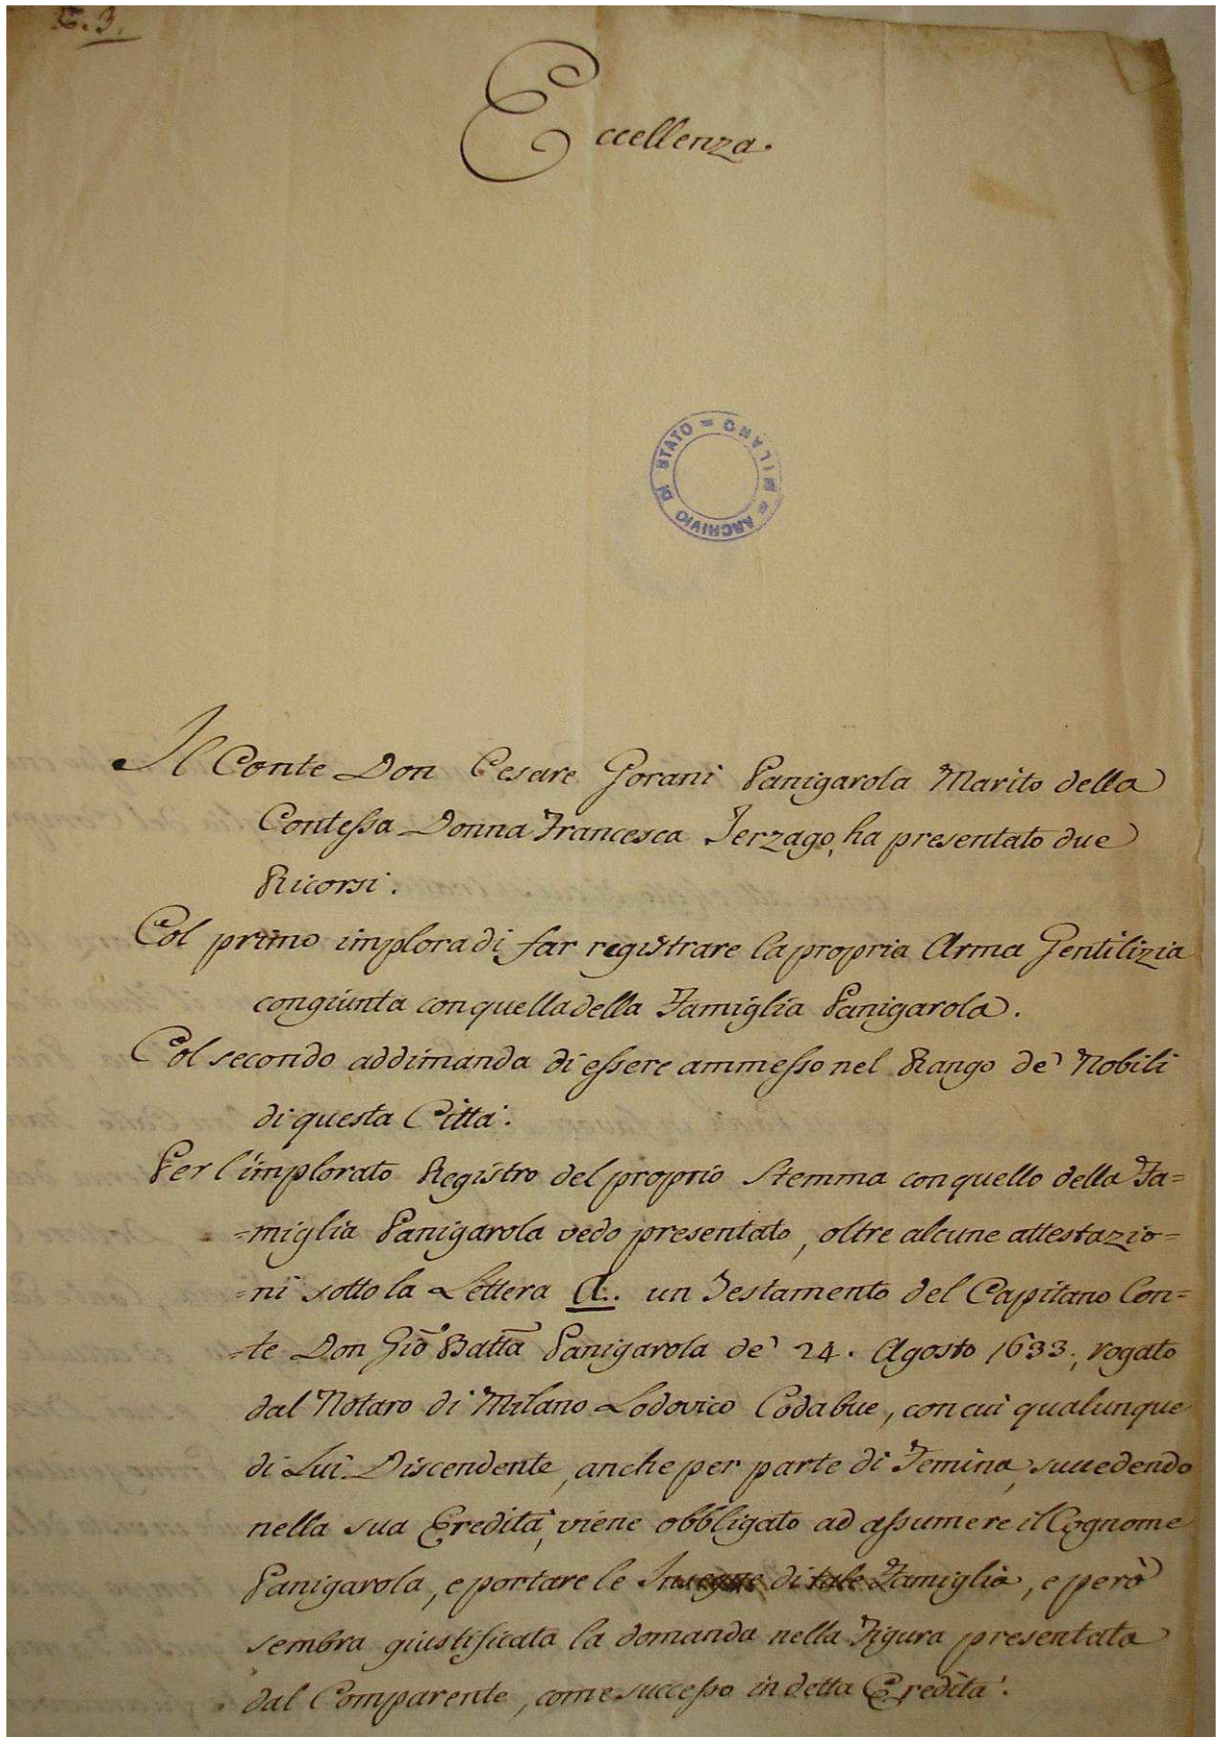 E.3.
Eccellenza.
ARCHIVIO DI STATO = MILANO =
Il Conte Don Cesare Gorani Panigarola Marito della
Contessa Donna Francesca Terzago, ha presentato due
Ricorsi.
Col primo implora di far registrare la propria Arma Gentilizia
congiunta con quella della Famiglia Panigarola.
Col secondo addimanda di essere ammesso nel Rango de' Nobili
di questa Città.
Per l'implorato Registro del proprio Stemma con quello della Fa=
=miglia Panigarola vedo presentato, oltre alcune attestazio=
=ni sotto la Lettera A. un Testamento del Capitano Con=
=te Don Gio Batta Panigarola de' 24. Agosto 1633., rogato
dal Notaro di Milano Lodovico Codabue, con cui qualunque
di Lui Discendente, anche per parte di Femina, succedendo
nella sua Eredità, viene obbligato ad assumere il Cognome
Panigarola, e portare le Insegne di tale Famiglia, e però
sembra giustificata la domanda nella Figura presentata
dal Comparente, come successo in detta Eredità.